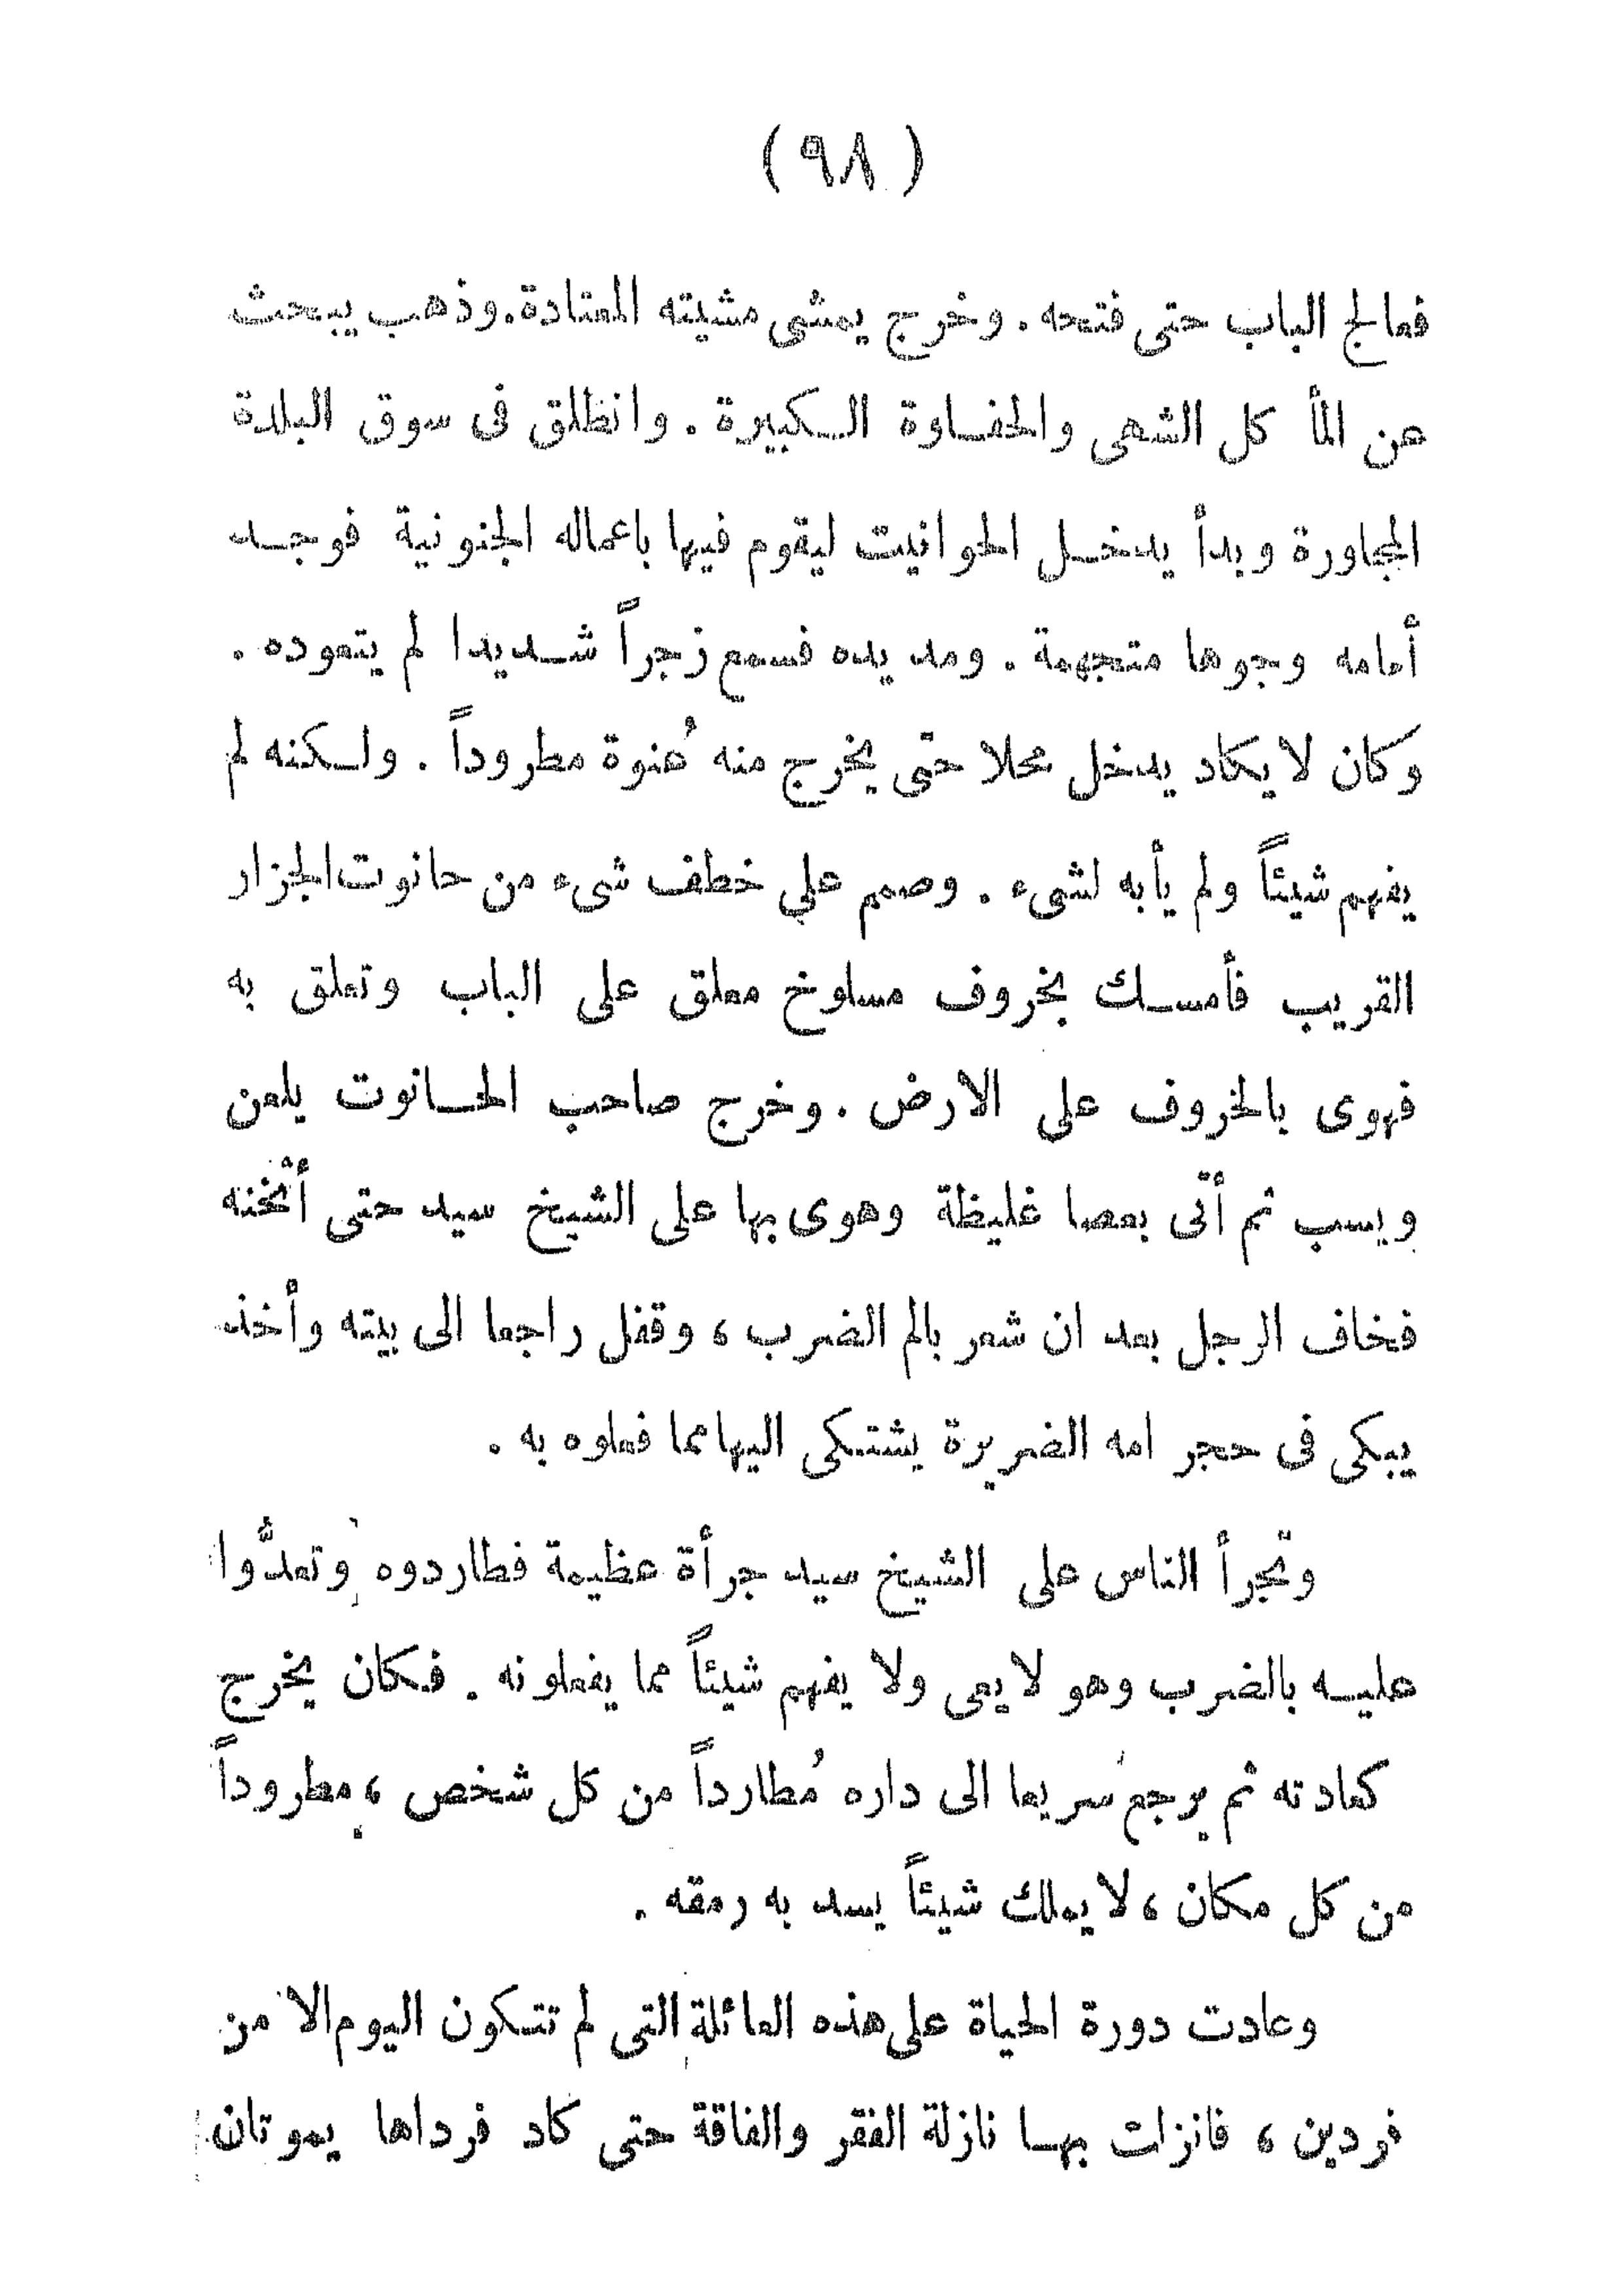 ( ٩٨ )
فعالج الباب حتى فتحه . وخرج يمشى مشيته المعتادة . وذهب يبحث
عن المأ كل الشهى والحفاوة الكبيرة . وانطلق فى سوق البلدة
المجاورة وبدأ يدخل الحوانيت ليقوم فيها باعماله الجنونية فوجد
أمامه وجوها متجهمة . ومد يده فسمع زجراً شديدا لم يتعوده .
وكان لا يكاد يدخل محلا حتى يخرج منه عُنوة مطروداً . ولكنه لم
يفهم شيئاً ولم يأبه لشىء . وصمم علي خطف شىء من حانوت الجزار
القريب فأمسك بخروف مسلوخ معلق على الباب وتعلق به
فهوى بالخروف على الارض . وخرج صاحب الحانوت يلعن
ويسب ثم أتى بعصا غليظة وهوى بها على الشيخ سيد حتى أثخنه
فخاف الرجل بعد ان شعر بالم الضرب ، وقفل راجعا الى بيته وأخذ
يبكى فى حجر امه الضريرة يشتكى اليها مما فعلوه به .
وتجرأ الناس على الشيخ سيد جرأة عظيمة فطاردوه وتعدُّوا
عليه بالضرب وهو لا يعى ولا يفهم شيئاً مما يفعلونه . فكان يخرج
كعادته ثم يرجع سريعا الى داره مُطارداً من كل شخص ، مطروداً
من كل مكان ، لا يملك شيئاً يسد به رمقه .
وعادت دورة الحياة على هذه العائلة التى لم تتكون اليوم الا من
فردين ، فانزلت بها نازلة الفقر والفاقة حتى كاد فرداها يموتان